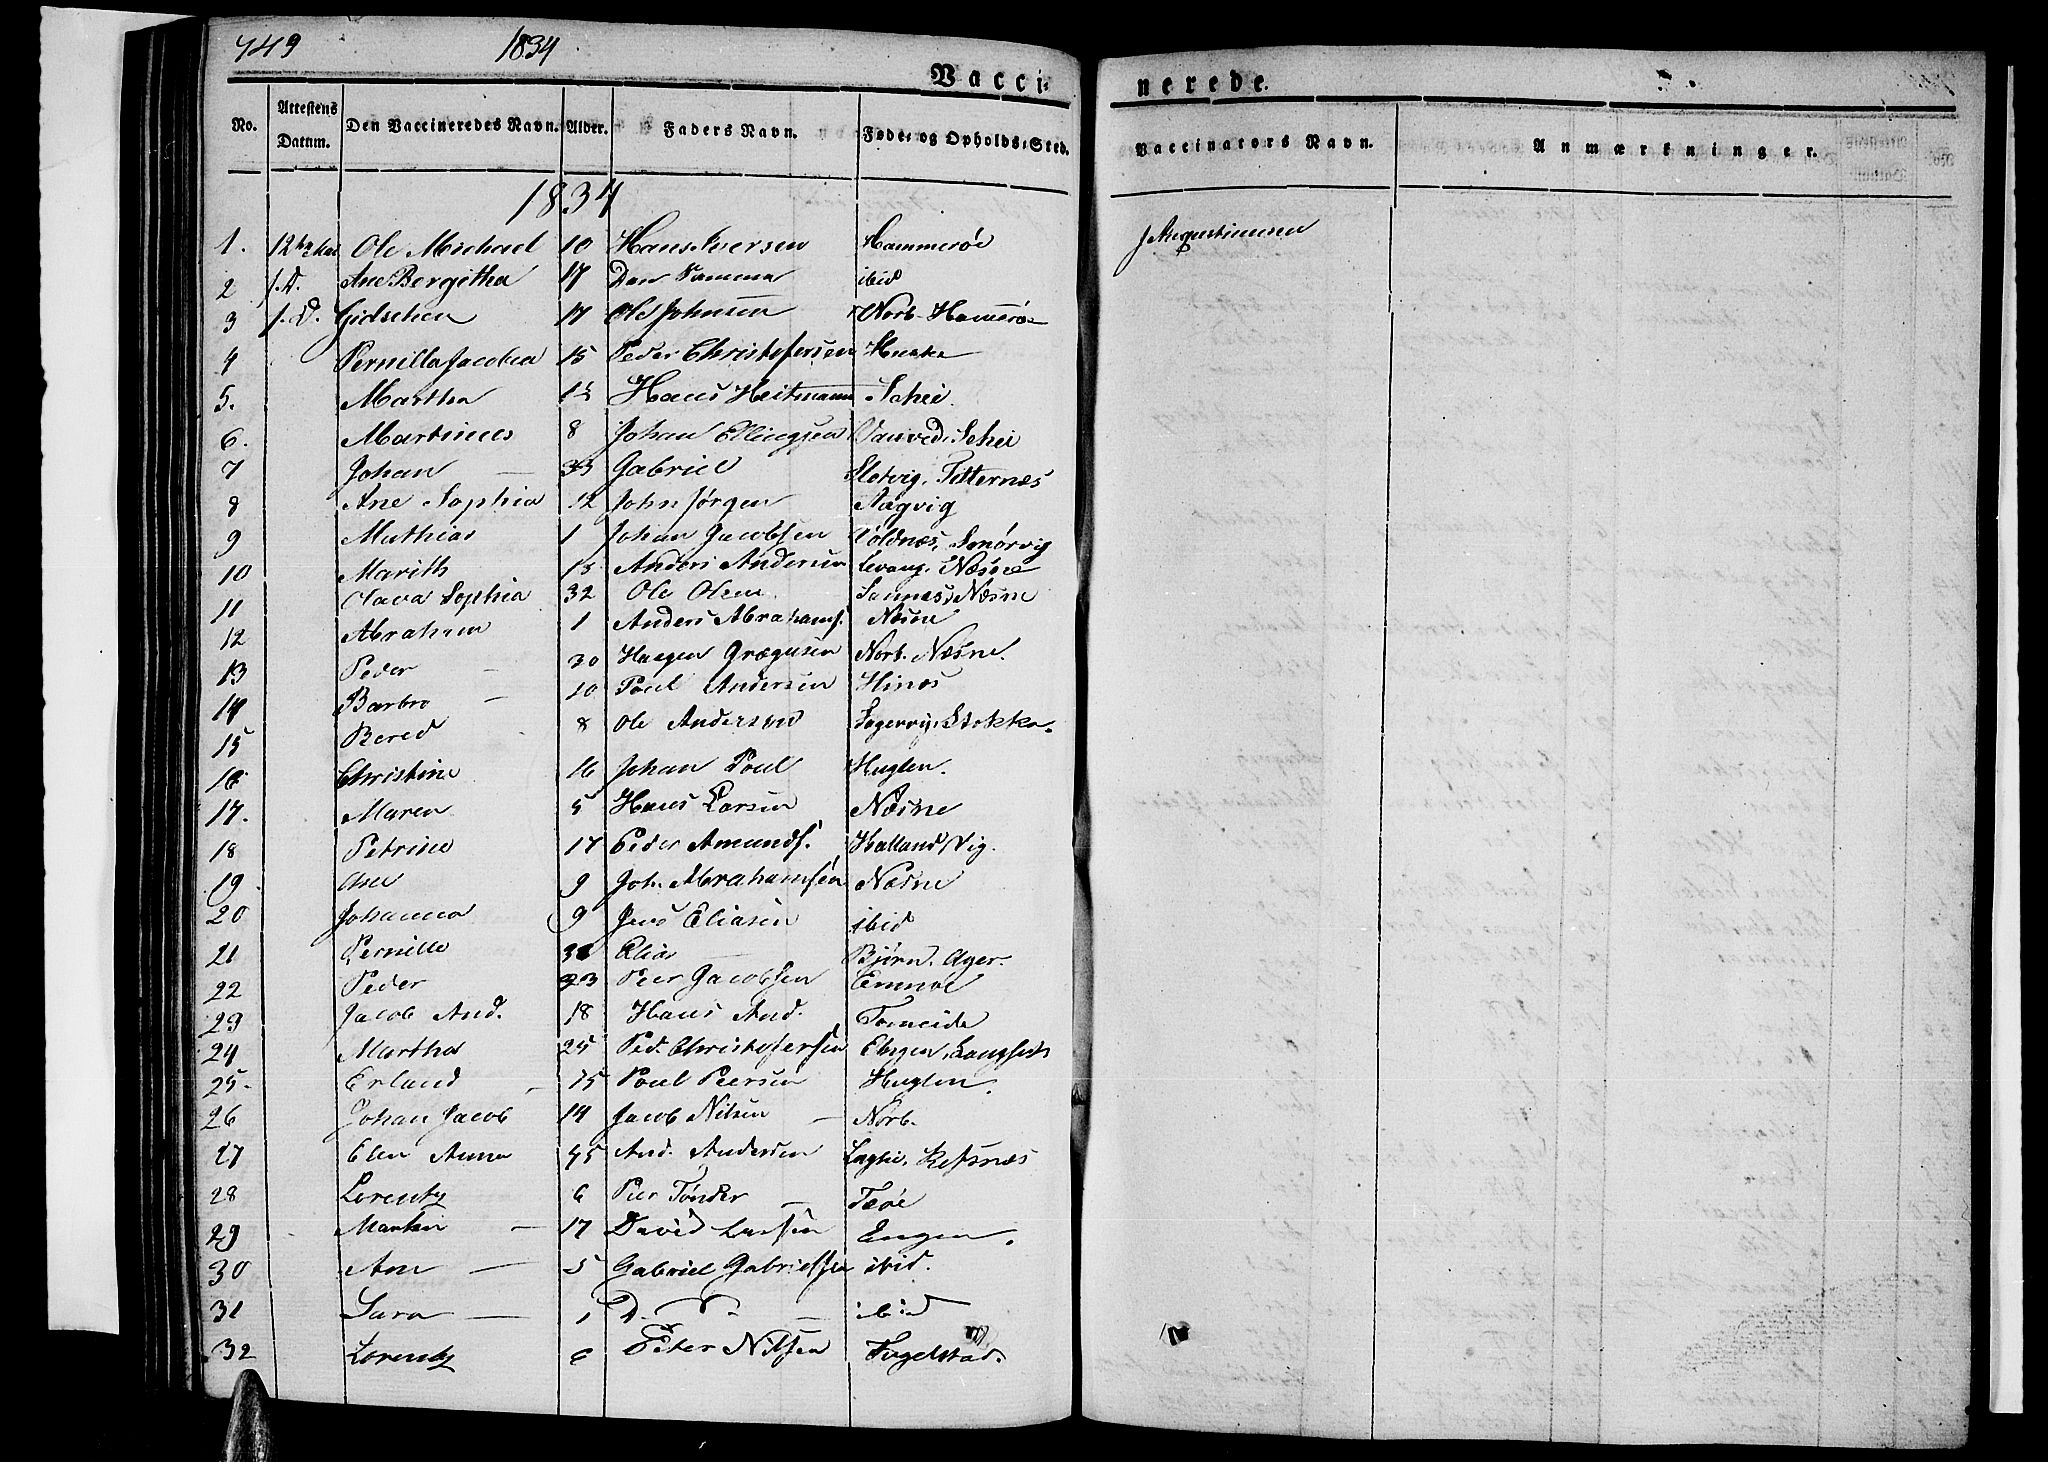 749 1834
Vacci-
nerede.
No. Attestens Datum. Den Vaccineredes Navn. Alder. Faders Navn. Føde- og Opholds-Sted.
Vaccinators Navn. Anmærkninger.
1834
1. 12 Ole Michael 10 Hans Iversen Hammerøe J Augustinussen
2 f. D. Ane Bergitha 17 Den Samme ibid
3 f. D. Gidschen 17 Ole Johnsen Norb. Hamerøe
4 Pernilla Jacobea 15 Peder Christofersen Huske
5. Martha 15 Hans Heitmann Schei.
6. Martinus 8 Johan Ellingsen Schei
7 Johan — 33 Gabriel Slotvig,
8 Ane Sophia 12 John Jørgen Aagvig
9 Mathias 1 Johan Jacobsen
10 Marith 15 Anders Andersen Levang, Næsne
11 Olava Sophia 32 Ole Olsen Sannes, Næsne
12 Abraham 1 Anders Abrahams. Næsne
13 Peder — 30 Haagen Norb. Næsne.
14 Barbro — 10 Poul Andersen
15 Bered 8 Ole Andersen Stokka.
16 Christine 16 Johan Poul Huglen.
17. Maren 5 Hans Larsen Næsne
18 Petrine 17 Peder Amunds. Halland, Vig.
19. 9 Joh. Abrahamsen Næsne
20 Johanna 9 Jens Eliasen ibid
21 Pernille Elias — Bjørn, Ager.
22 Peder 23 Peer Jacobsen
23 Jacob And. 18 Hans And. Forneide
24 Martha 25 Ped. Christofersen
25. Erland — 15 Poul Peersen Huglen.
26 Johan Jacob 14 Jacob Nilsen — Norb.
27 Elen Anna 45 And. Andersen Refsnæs
28 Lorentz 6 Peer Tønder —
29 Martin — 17 David Larsen Engen.
30 Ane — 5 Gabriel Gabrielsen ibid.
31 Sara — 1 D. — ibid
32 Lorentz 6 Peter Nilsen Fugelstad.